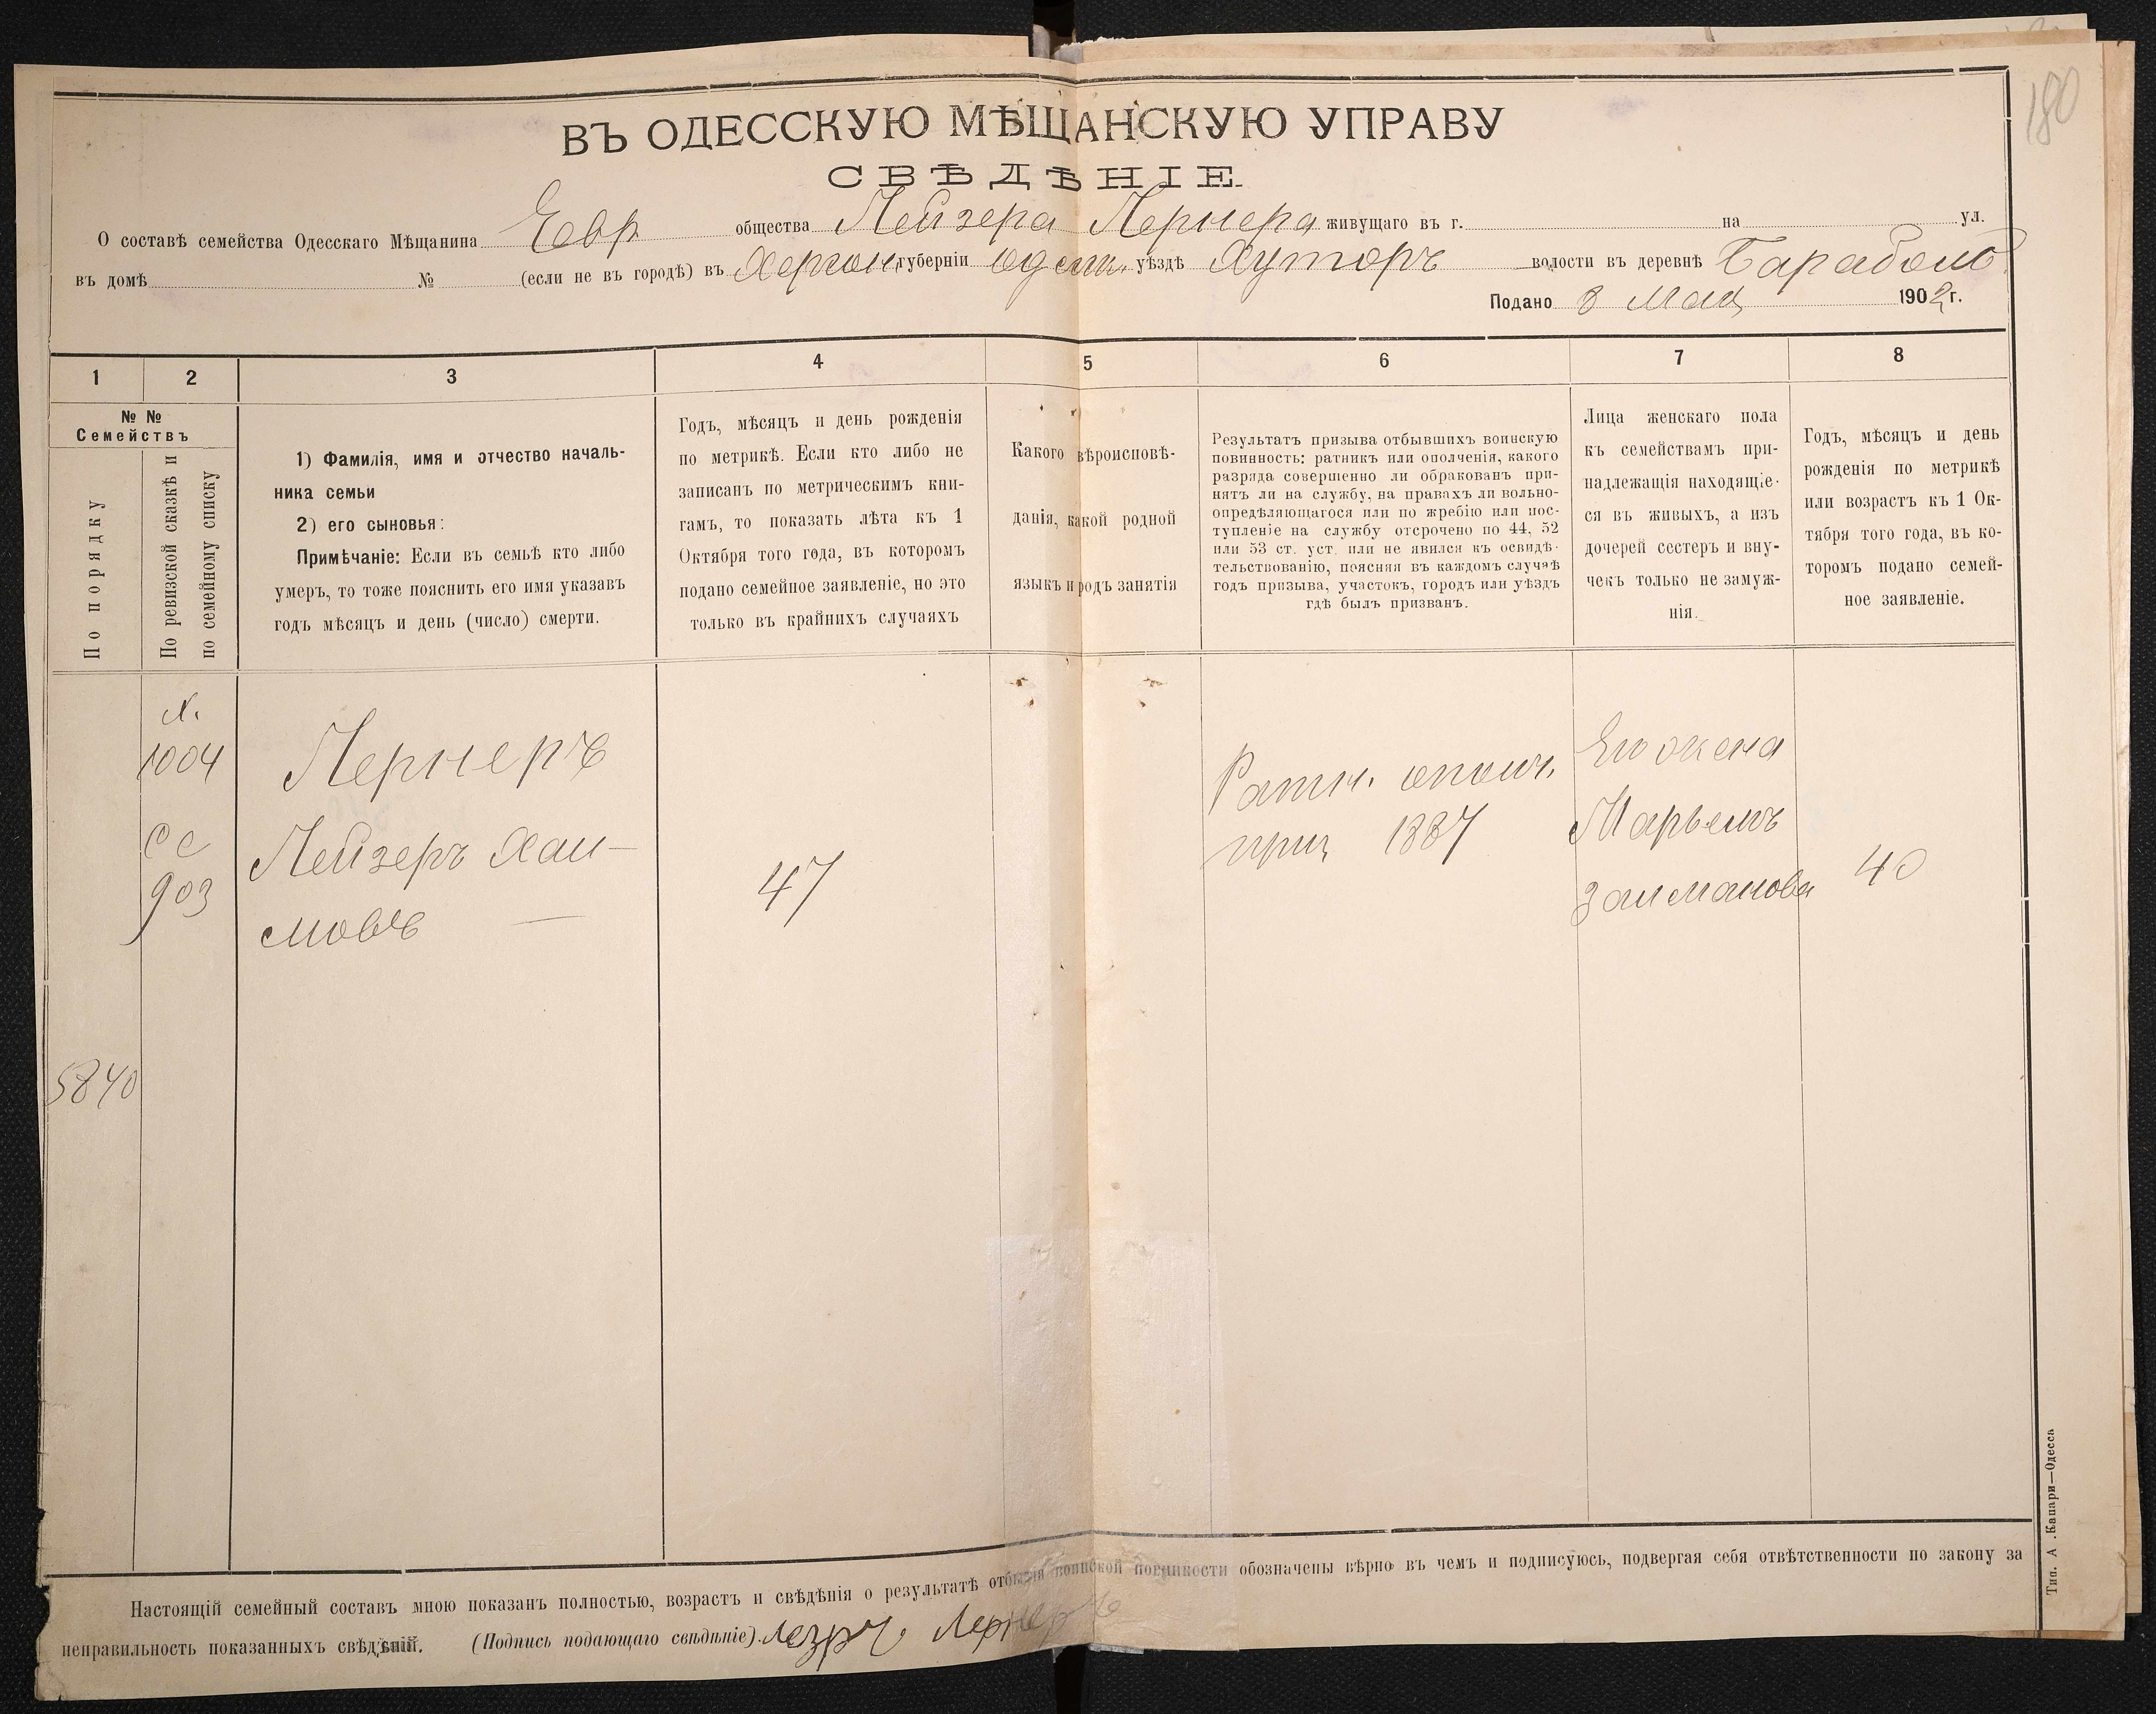 180
ВЪ ОДЕССКУЮ МѢЩАНСКУЮ УПРАВУ
СВѢДѢНІЕ.
О составѣ семейства Одесскаго Мѣщанина Евр общества Лейзера Лернера живущаго въ г. на ул.
въ домѣ № (если не въ городѣ) въ Херсон. губерніи одесск. уѣздѣ Хуторъ волости въ деревнѣ Барабой
Подано 3 Мая 1902 г.
1 2 3 4 5 6 7 8
№ №
Семействъ
По порядку
По ревизской сказкѣ и
по семейному списку
1) Фамилія, имя и отчество началь-
ника семьи
2) его сыновья:
Примѣчаніе: Если въ семьѣ кто либо
умеръ, то тоже пояснить его имя указавъ
годъ мѣсяцъ и день (число) смерти.
Годъ, мѣсяцъ и день рожденія
по метрикѣ. Если кто либо не
записанъ по метрическимъ кни-
гамъ, то показать лѣта къ 1
Октября того года, въ которомъ
подано семейное заявленіе, но это
только въ крайнихъ случаяхъ
Какого вѣроисповѣ-
данія, какой родной
языкъ и родъ занятія
Результатъ призыва отбывшихъ воинскую
повинность: ратникъ или ополченія, какого
разряда совершенно ли обракованъ при-
нятъ ли на службу, на правахъ ли вольно-
опредѣляющагося или по жребію или пос-
тупленіе на службу отсрочено по 44, 52
или 53 ст. уст. или не явился къ освидѣ-
тельствованію, поясняя въ каждомъ случаѣ
годъ призыва, участокъ, городъ или уѣздъ
гдѣ былъ призванъ.
Лица женскаго пола
къ семействамъ при-
надлежащія находящіе-
ся въ живыхъ, а изъ
дочерей сестеръ и вну-
чекъ только не замуж-
нія.
Годъ, мѣсяцъ и день
рожденія по метрикѣ
или возрастъ къ 1 Ок-
тября того года, въ ко-
торомъ подано семей-
ное заявленіе.
1004
сс
903
5840
Лернеръ
Лейзеръ Хаи-
мовъ
47
Ратн. ополч.
приз 1887
Его жена
Марьемъ
Залманова
40
Настоящій семейный составъ мною показанъ полностью, возрастъ и свѣдѣнія о результатѣ отбытія воинской повинности обозначены вѣрно въ чемъ и подписуюсь, подвергая себя отвѣтственности по закону за
неправильность показанныхъ свѣдѣній. (Подпись подающаго свѣдѣніе). Лезръ Лернеръ
Тип. А. Капари—Одесса